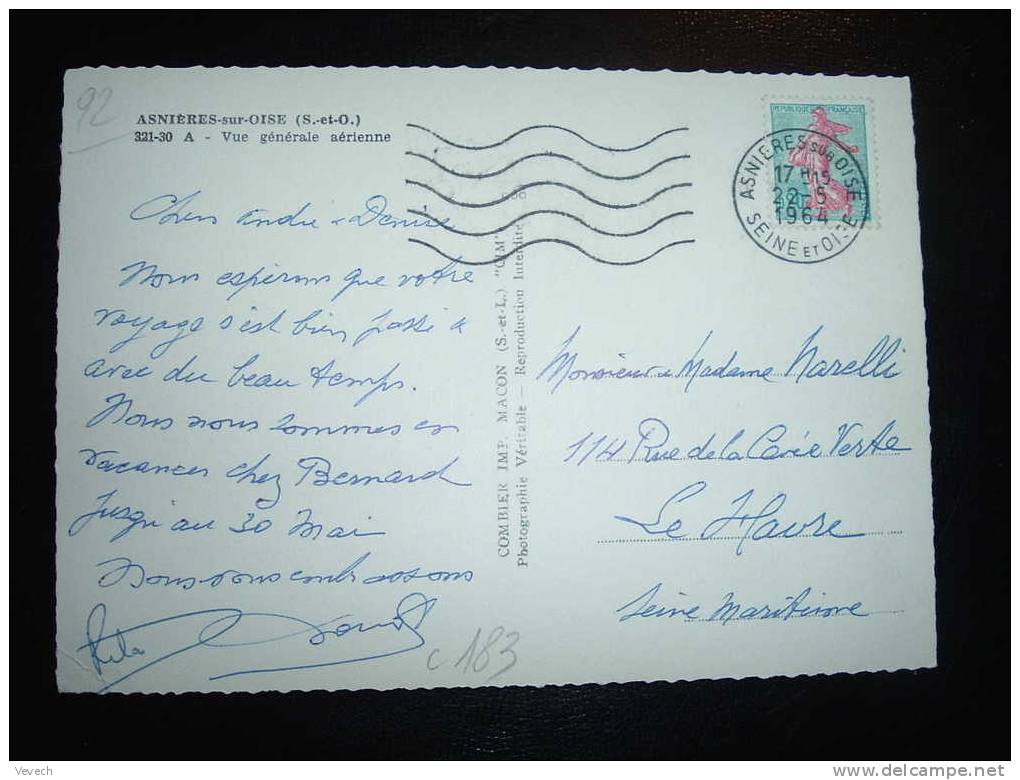 92
ASNIÈRES-sur-OISE (S.-et-O.)
321-30 A - Vue générale aérienne
Chers André & Denise
Nous espérons que votre
voyage s'est bien passé &
avec du beau temps.
Nous nous sommes en
vacances chez Bernard
jusqu'au 30 Mai
Nous vous embrassons
Rita
c 183
COMBIER IMP. MACON (S.-et-L.) "CIM"
Photographie Véritable — Reproduction Interdite
REPUBLIQUE FRANÇAISE
ASNIERES SUR OISE
17 H 15
22-5
1964
SEINE ET OISE
Monsieur & Madame Narelli
114 Rue de la Cavée Verte
Le Havre
Seine Maritime
Vevech
delcampe.net